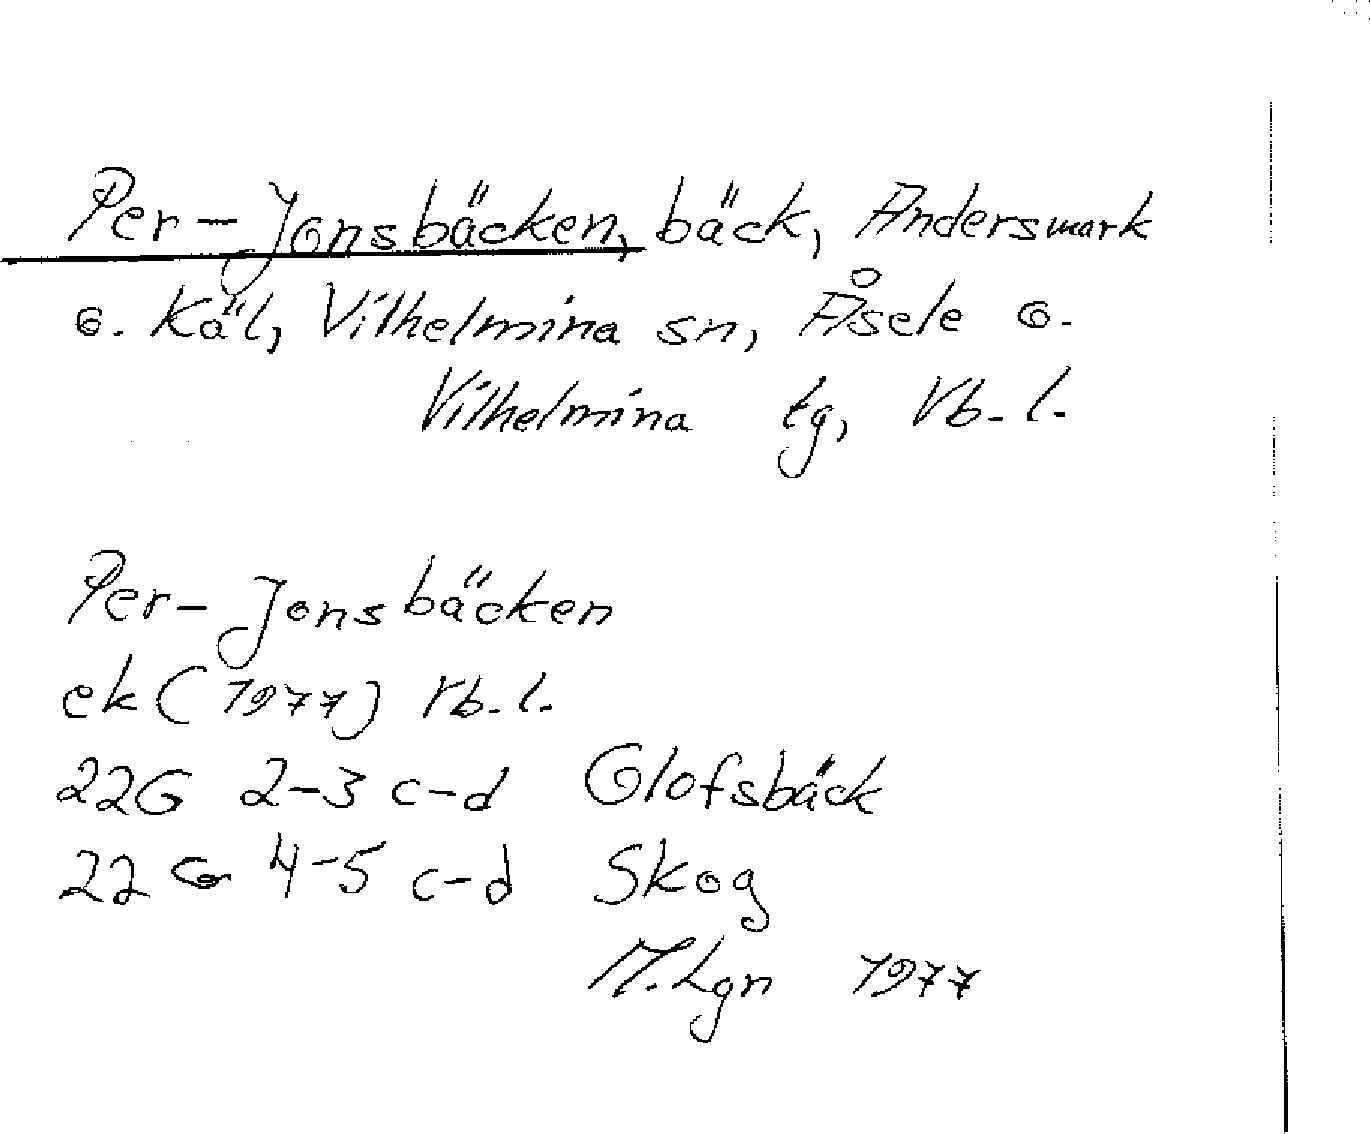 Per-Jonsbäcken, bäck, Andersmark
o. Käl, Vilhelmina sn, Åsele o.
Vilhelmina tg, Vb. l.
Per-Jonsbäcken
ek (1977) Vb. l.
22G 2-3 c-d Olofsbäck
22G 4-5 c-d Skog
M. Lgn 1977